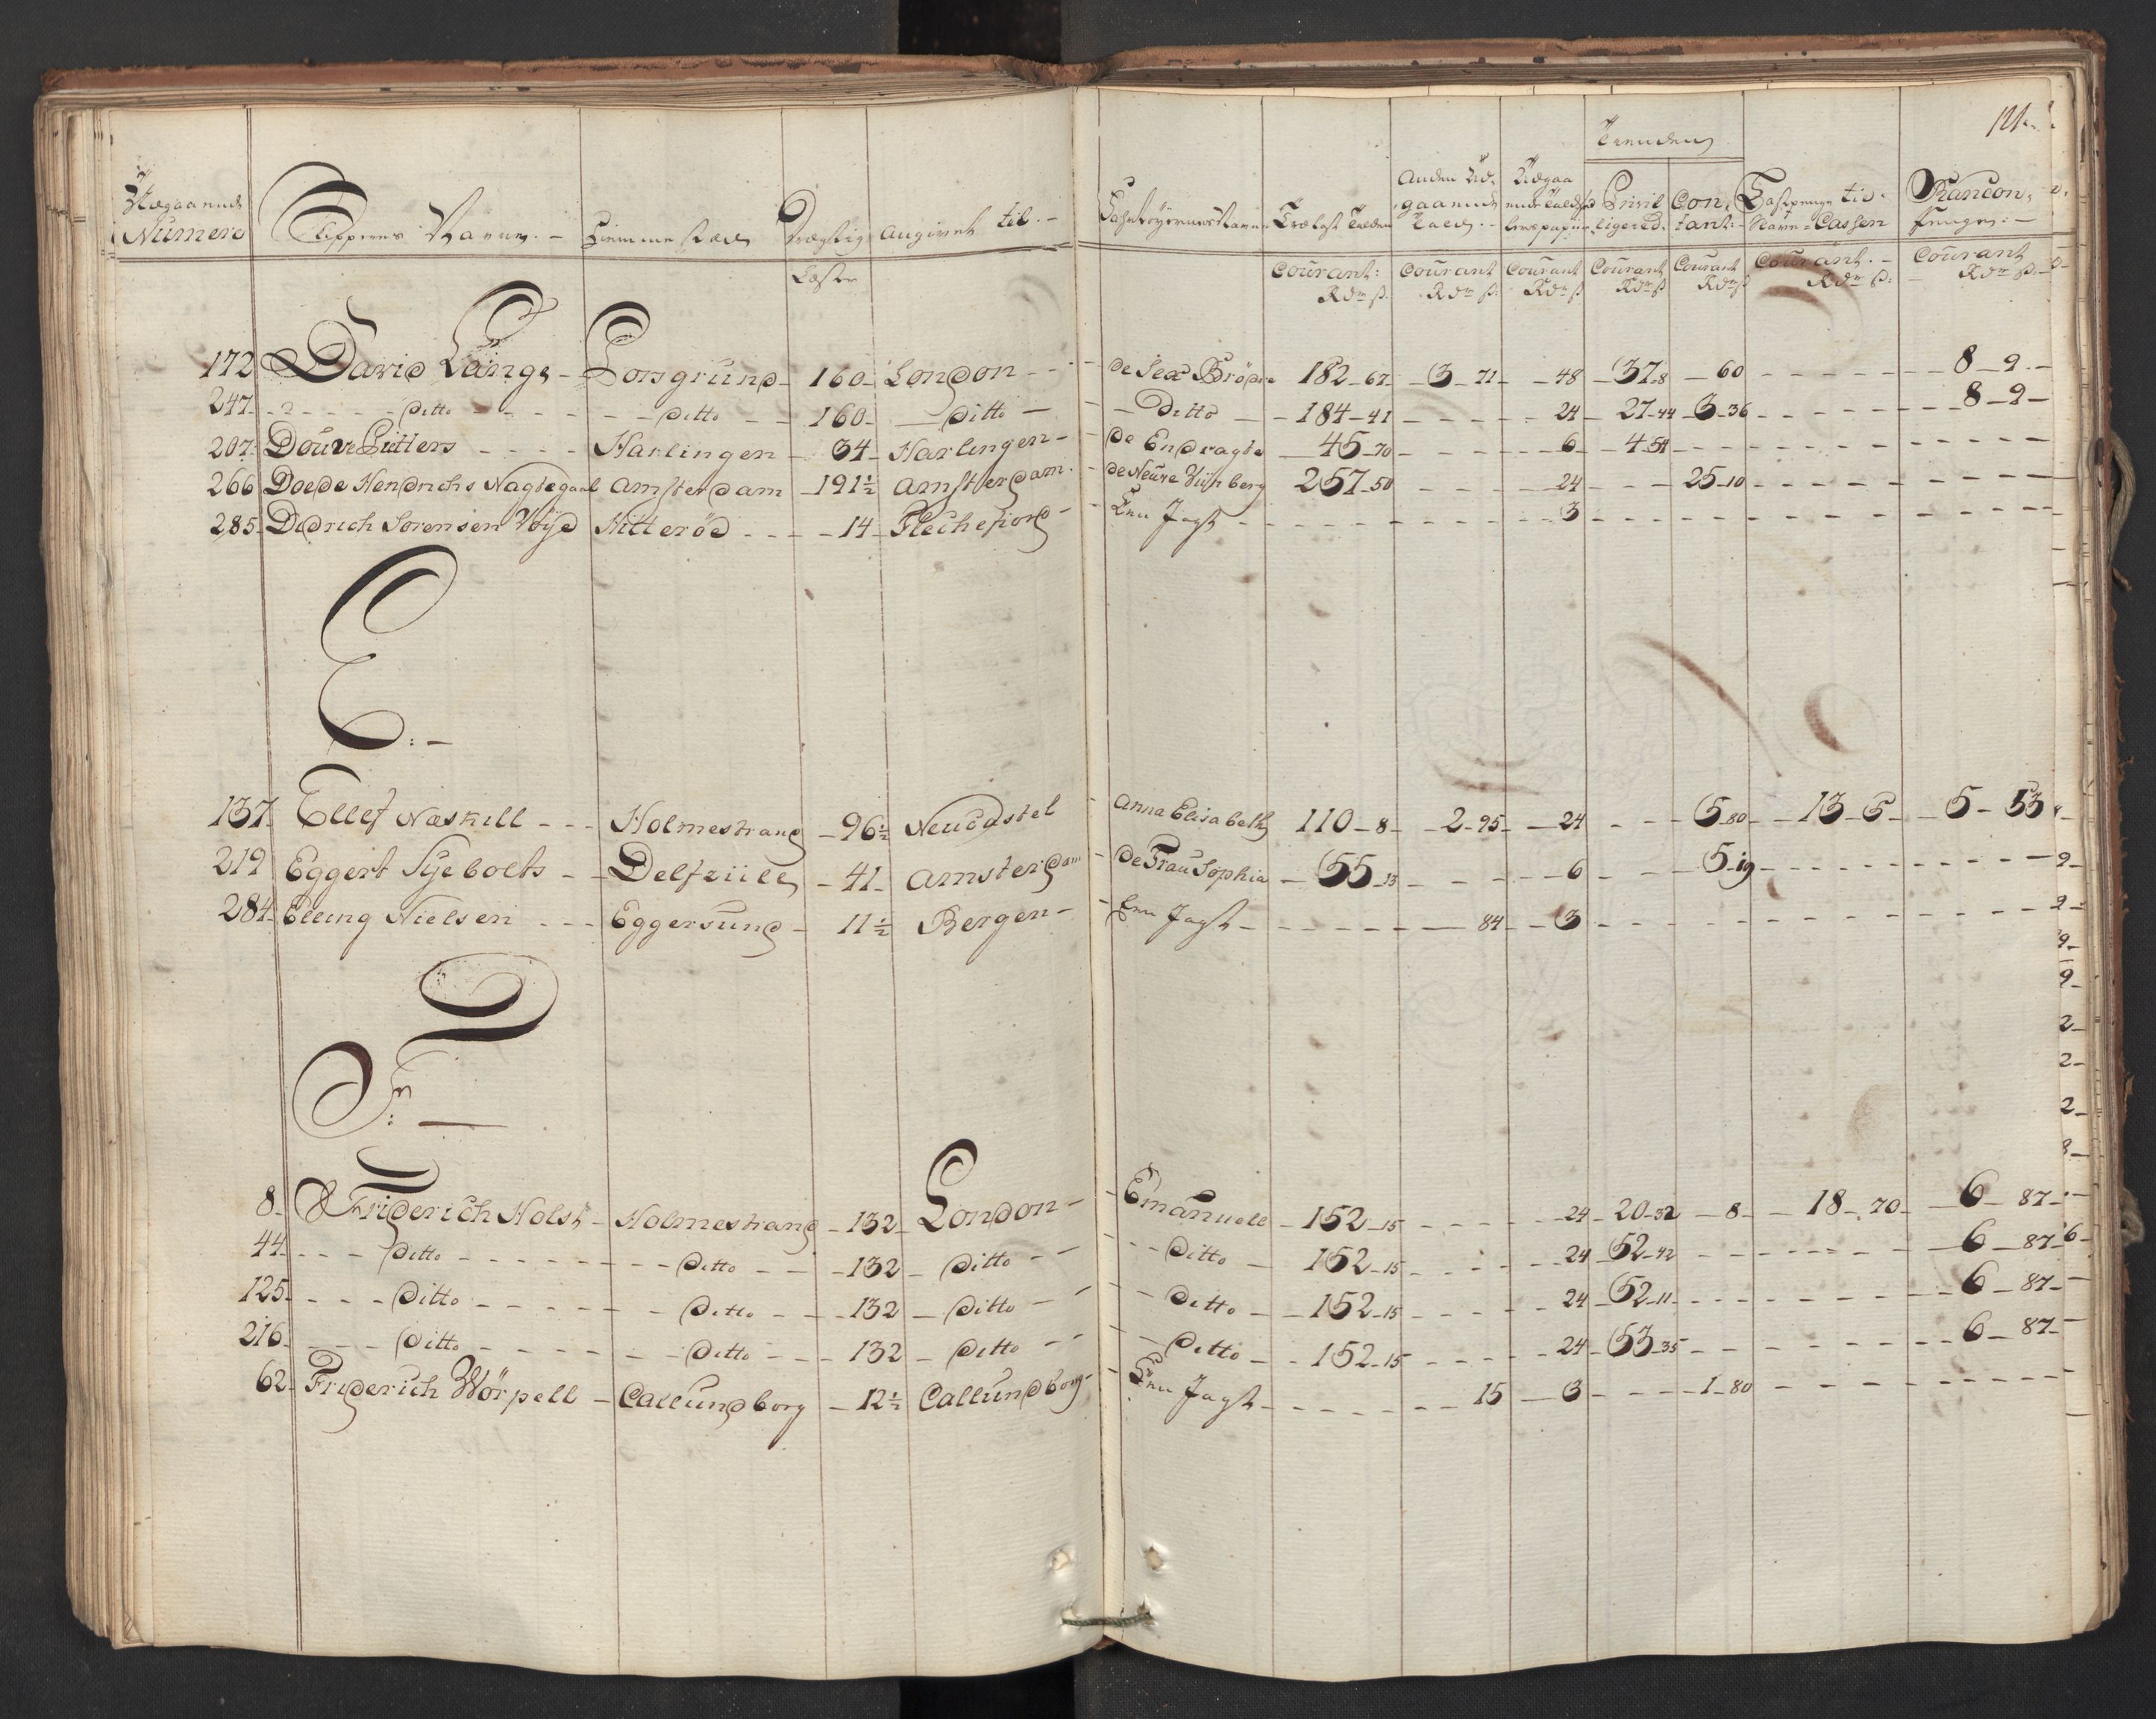 121.
Udgaaende Numero | Skipperens Navne. | Hiemme stæd | Drægtighed | Angivet til.- | Fahrtøyernes Navne | Trælast Tolden | Anden Udgaaende Told.- | Udgaaende | Tienden | Privilligered. | Contant:- | Lastpenge til Havne=Cassen | Rancon, Penger:-
Læster | Courant: Rdr ß. | Courant Rdr ß. | Courant Rdr ß | Courant Rdr ß | Courant Rdr ß | Courant.- Rdr ß: | Courant Rdr ß.
172 David Lange - Porsgrund - 160 - London - - de Sex Brödre 182-67 - 3-71 - 48 - 37-8 - 60 - - - 8-9.-
247 - - - ditto - - - ditto - - 160 - ditto - - Ditto - 184-41 - - - 24 - 27-44 - 3-36 - - - 8-9-
207 Douve - - - Harlingen - 34 - Harlingen - - de Endragte - 45-70 - - - 6 - 4-54 - - -
266 Doede Hendrichs Nagtegaal Amsterdam - 191½ Amsterdam - de 257-50 - - - 24 - - - 25-10 - - -
285 Didrich Sorensen Hitteröe - - - 14 - Flechefiord - Een Jagt - - - 3 - - -
E:-
137 Ellef - - - Holmestrand - 96½ Neucastel - Anna Elisabeth 110-8 - 2-95 - 24 - - - 5-80 - 13-5 - 5-53
219 Eggert Syebolts - - Delfziile - 41 - Amsterdam - de Frau Sophia - 55-33 - - - 6 - - - 5-19 - - -
284 Elling Nielsen - - - Eggersund - 11½ Bergen - - Een Jagt - - - 84 - 3 - - -
F:-
8 Friderich Holst - Holmestrand - 132 - London - - Emanuell - 152-15 - - - 24 - 20-32 - 8 - 18-70 - 6-87-
44 - - - ditto - - - ditto - - 132 - ditto - - - ditto - 152-15 - - - 24 - 52-42 - - - 6-87
125 - - - ditto - - - ditto - - 132 - ditto - - - ditto - 152-15 - - - 24 - 52-11 - - - 6-87-
216 - - - ditto - - - ditto - - 132 - ditto - - - ditto - 152-15 - - - 24 - 53-35 - - - 6-87-
62 Friderich Wörpell - Callundborg - 12½ Callundborg - Een Jagt - - - 15 - 3 - - - 1-80 - - -